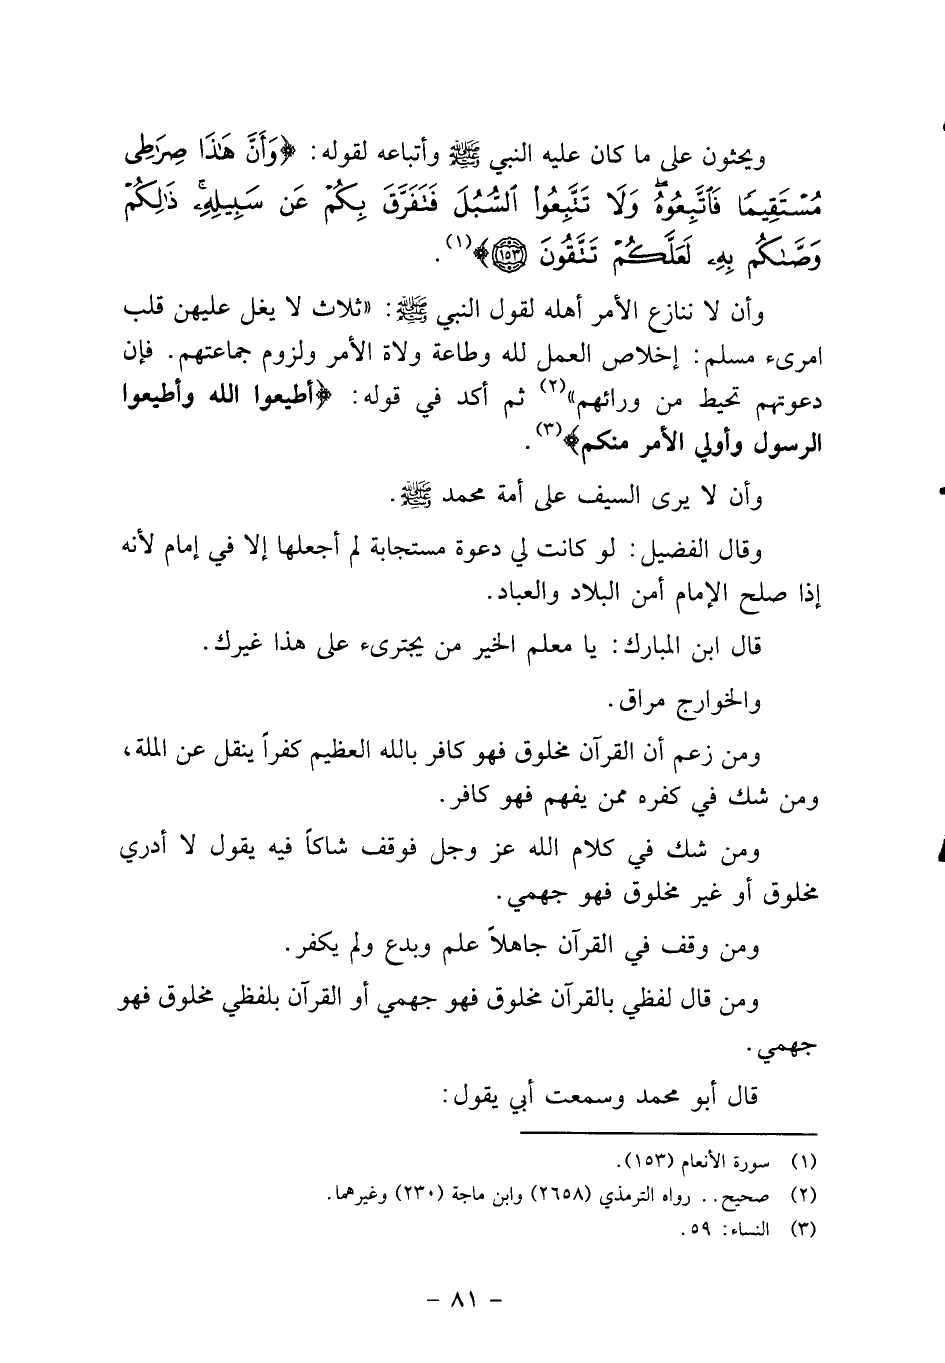 ويحثون على ما كان عليه النبي ﷺ وأتباعه لقوله: ﴿وَأَنَّ هَٰذَا صِرَٰطِى
مُسۡتَقِيمٗا فَٱتَّبِعُوهُۖ وَلَا تَتَّبِعُواْ ٱلسُّبُلَ فَتَفَرَّقَ بِكُمۡ عَن سَبِيلِهِۦۚ ذَٰلِكُمۡ
وَصَّىٰكُم بِهِۦ لَعَلَّكُمۡ تَتَّقُونَ ١٥٣﴾(١).
وأن لا ننازع الأمر أهله لقول النبي ﷺ: «ثلاث لا يغل عليهن قلب
امرىء مسلم: إخلاص العمل لله وطاعة ولاة الأمر ولزوم جماعتهم. فإن
دعوتهم تحيط من ورائهم»(٢) ثم أكد في قوله: ﴿أطيعوا الله وأطيعوا
الرسول وأولي الأمر منكم﴾(٣).
وأن لا يرى السيف على أمة محمد ﷺ.
وقال الفضيل: لو كانت لي دعوة مستجابة لم أجعلها إلا في إمام لأنه
إذا صلح الإمام أمن البلاد والعباد.
قال ابن المبارك: يا معلم الخير من يجترىء على هذا غيرك.
والخوارج مراق.
ومن زعم أن القرآن مخلوق فهو كافر بالله العظيم كفراً ينقل عن الملة،
ومن شك في كفره ممن يفهم فهو كافر.
ومن شك في كلام الله عز وجل فوقف شاكاً فيه يقول لا أدري
مخلوق أو غير مخلوق فهو جهمي.
ومن وقف في القرآن جاهلاً علم وبدع ولم يكفر.
ومن قال لفظي بالقرآن مخلوق فهو جهمي أو القرآن بلفظي مخلوق فهو
جهمي.
قال أبو محمد وسمعت أبي يقول:
(١) سورة الأنعام (١٥٣).
(٢) صحيح.. رواه الترمذي (٢٦٥٨) وابن ماجة (٢٣٠) وغيرهما.
(٣) النساء: ٥٩.
- ٨١ -